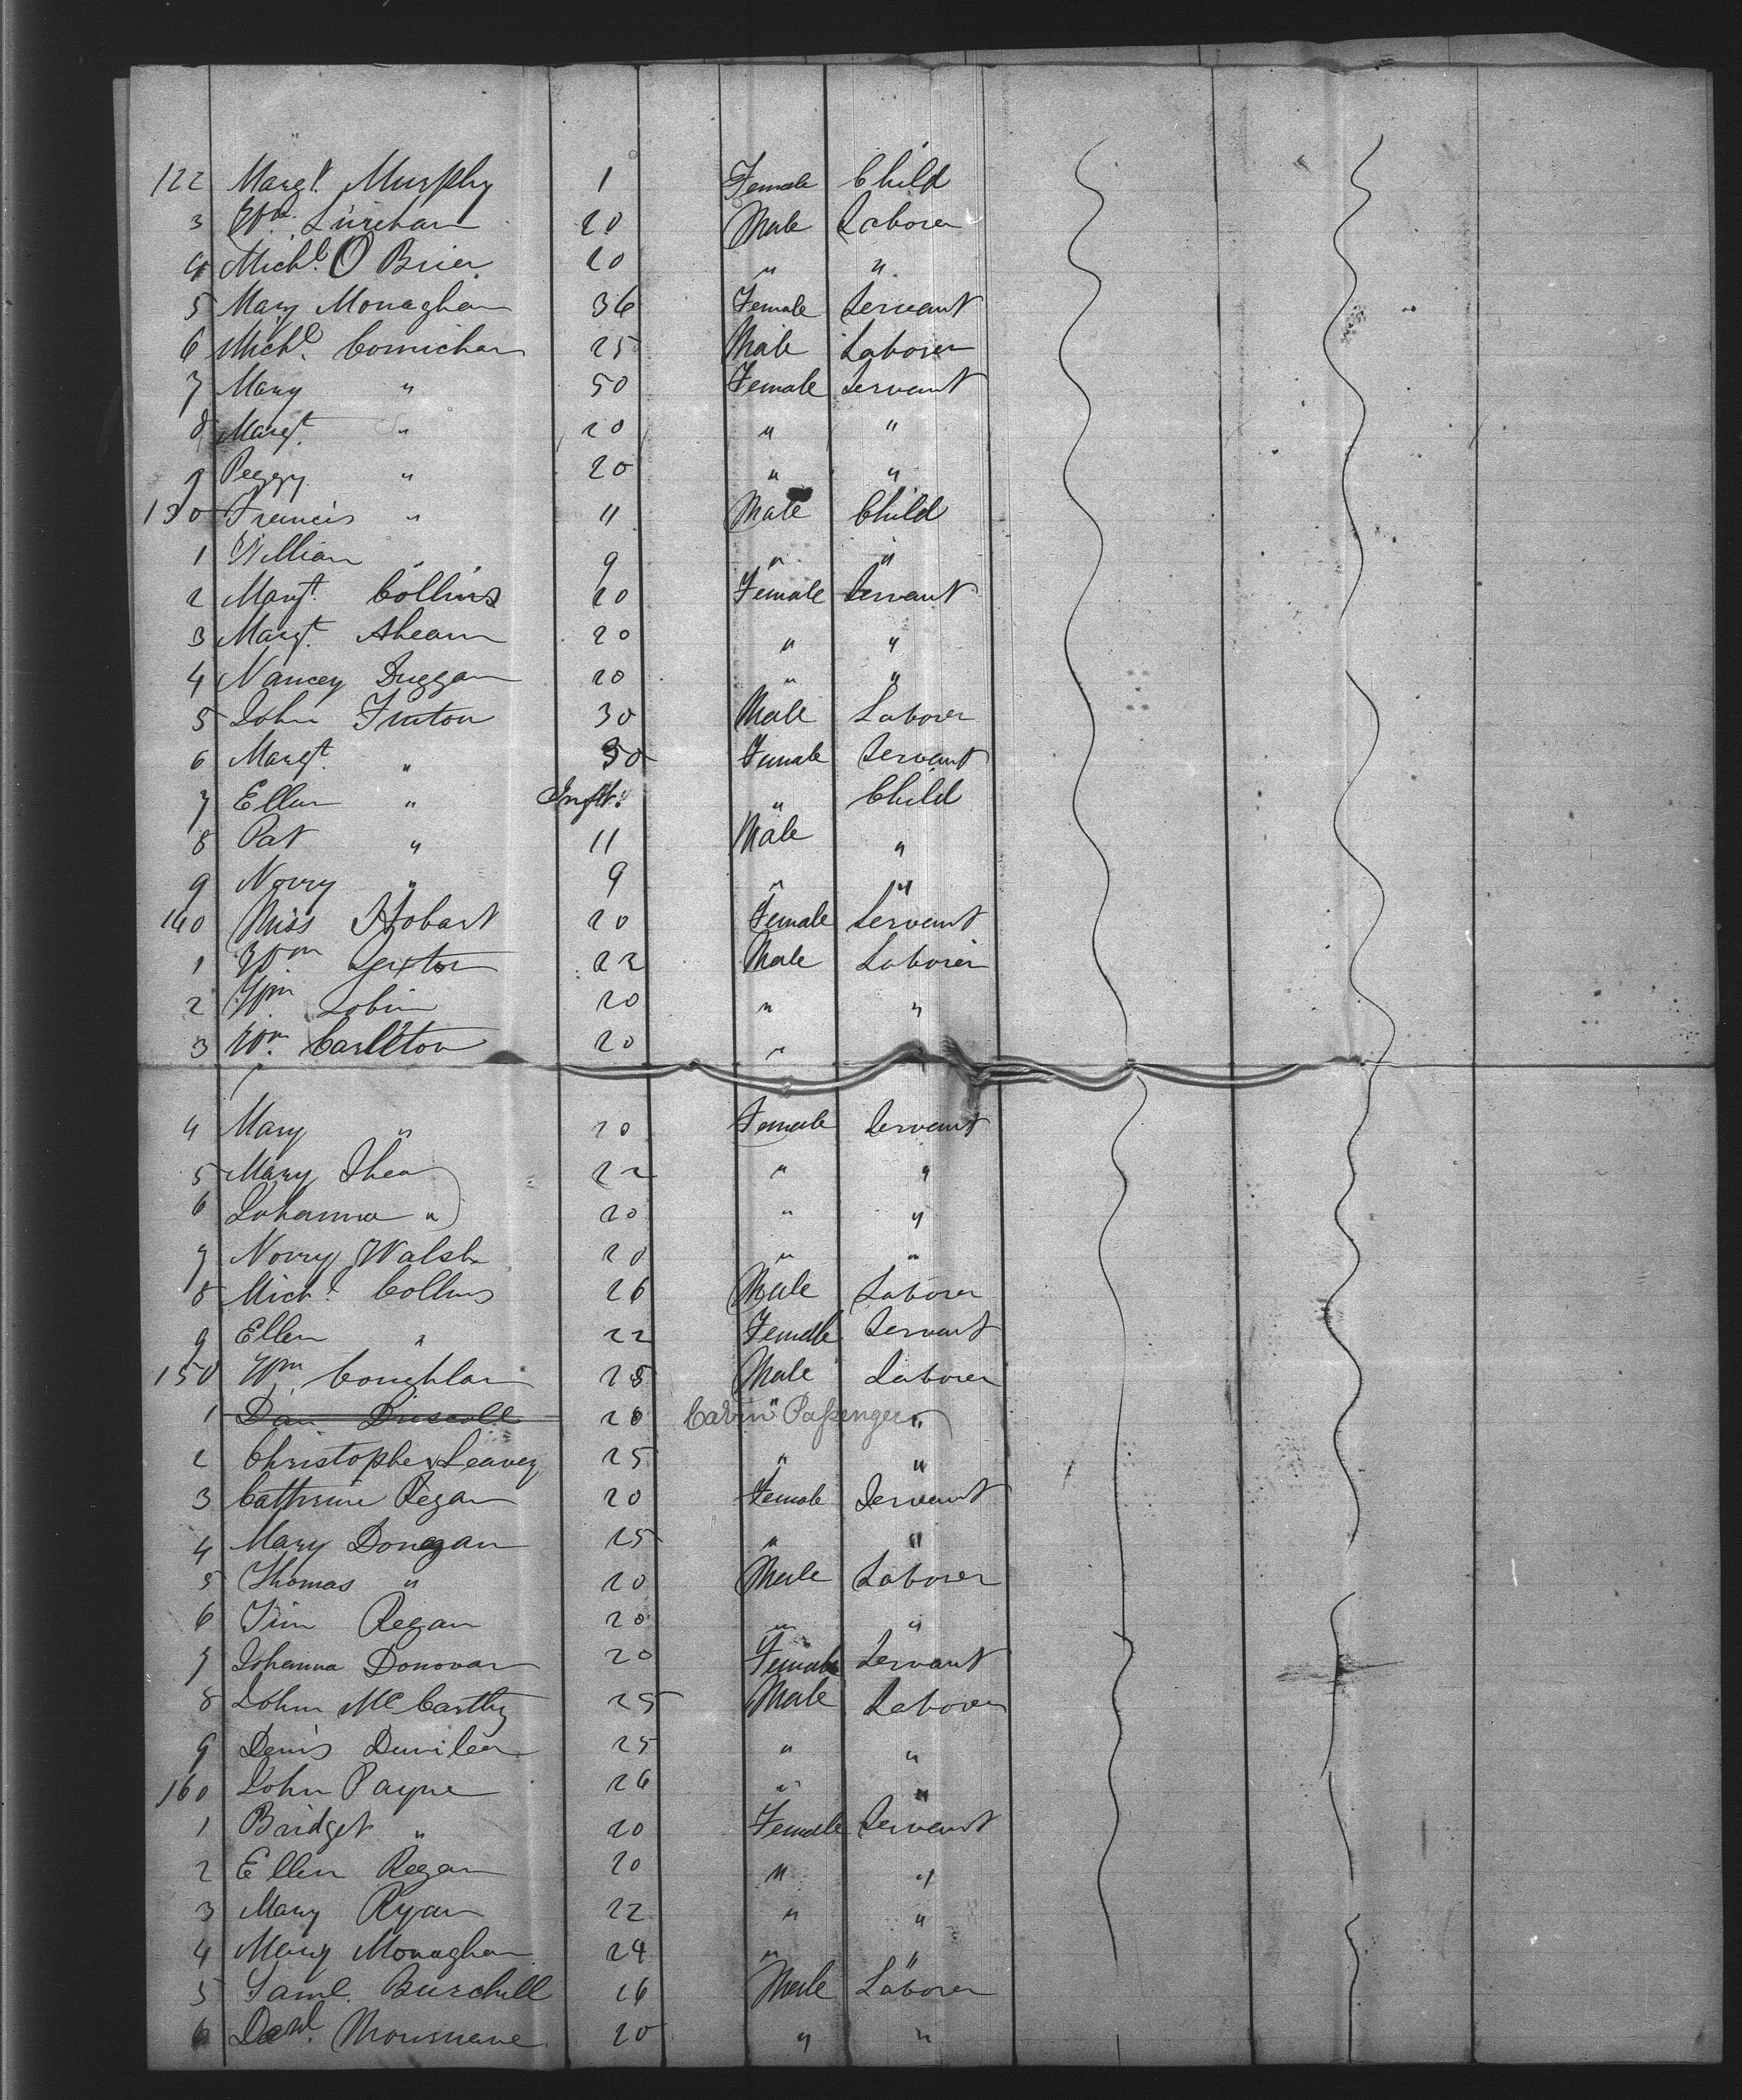 122 Margt. Murphy 1 Female Child
3 Wm. Linehan 20 Male Laborer
4 Michl. O Brien 20 " "
5 Mary Monaghan 36 Female Servant
6 Michl. Cornichan 25 Male Laborer
7 Mary " 50 Female Servant
8 Margt. " 20 " "
9 Peggy " 20 " "
130 Francis " 11 Male Child
1 William " 9 " "
2 Margt. Collins 20 Female Servant
3 Margt. Ahearn 20 " "
4 Nancey Duggan 20 " "
5 John Finton 30 Male Laborer
6 Margt. " 30 Female Servant
7 Ellen " Inft. " Child
8 Pat " 11 Male "
9 Norry " 9 " "
140 Miss Hobart 20 Female Servant
1 Wm Sexton 22 Male Laborer
2 Wm. Tobin 20 " "
3 Wm. Carleton 20 "
4 Mary " 20 Female Servant
5 Mary Shea 22 " "
6 Johanna " 20 " "
7 Norry Walsh 20 " "
8 Michl. Collins 26 Male Laborer
9 Ellen " 22 Female Servant
150 Wm. Coughlan 25 Male Laborer
1 Dan Driscoll 20 " Cabin Passenger "
2 Christopher Leavey 25 " "
3 Cathrine Regan 20 Female Servant
4 Mary Donegan 25 " "
5 Thomas " 20 Male Laborer
6 Tim Regan 20 " "
7 Johanna Donovan 20 Female Servant
8 John McCarthy 25 Male Laborer
9 Denis 25 " "
160 John Payne 26 " "
1 Bridget " 20 Female Servant
2 Ellen Regan 20 " "
3 Mary Ryan 22 " "
4 Mary Monaghan 24 " "
5 Saml. Burchill 26 Male Laborer
6 Danl. 20 " "